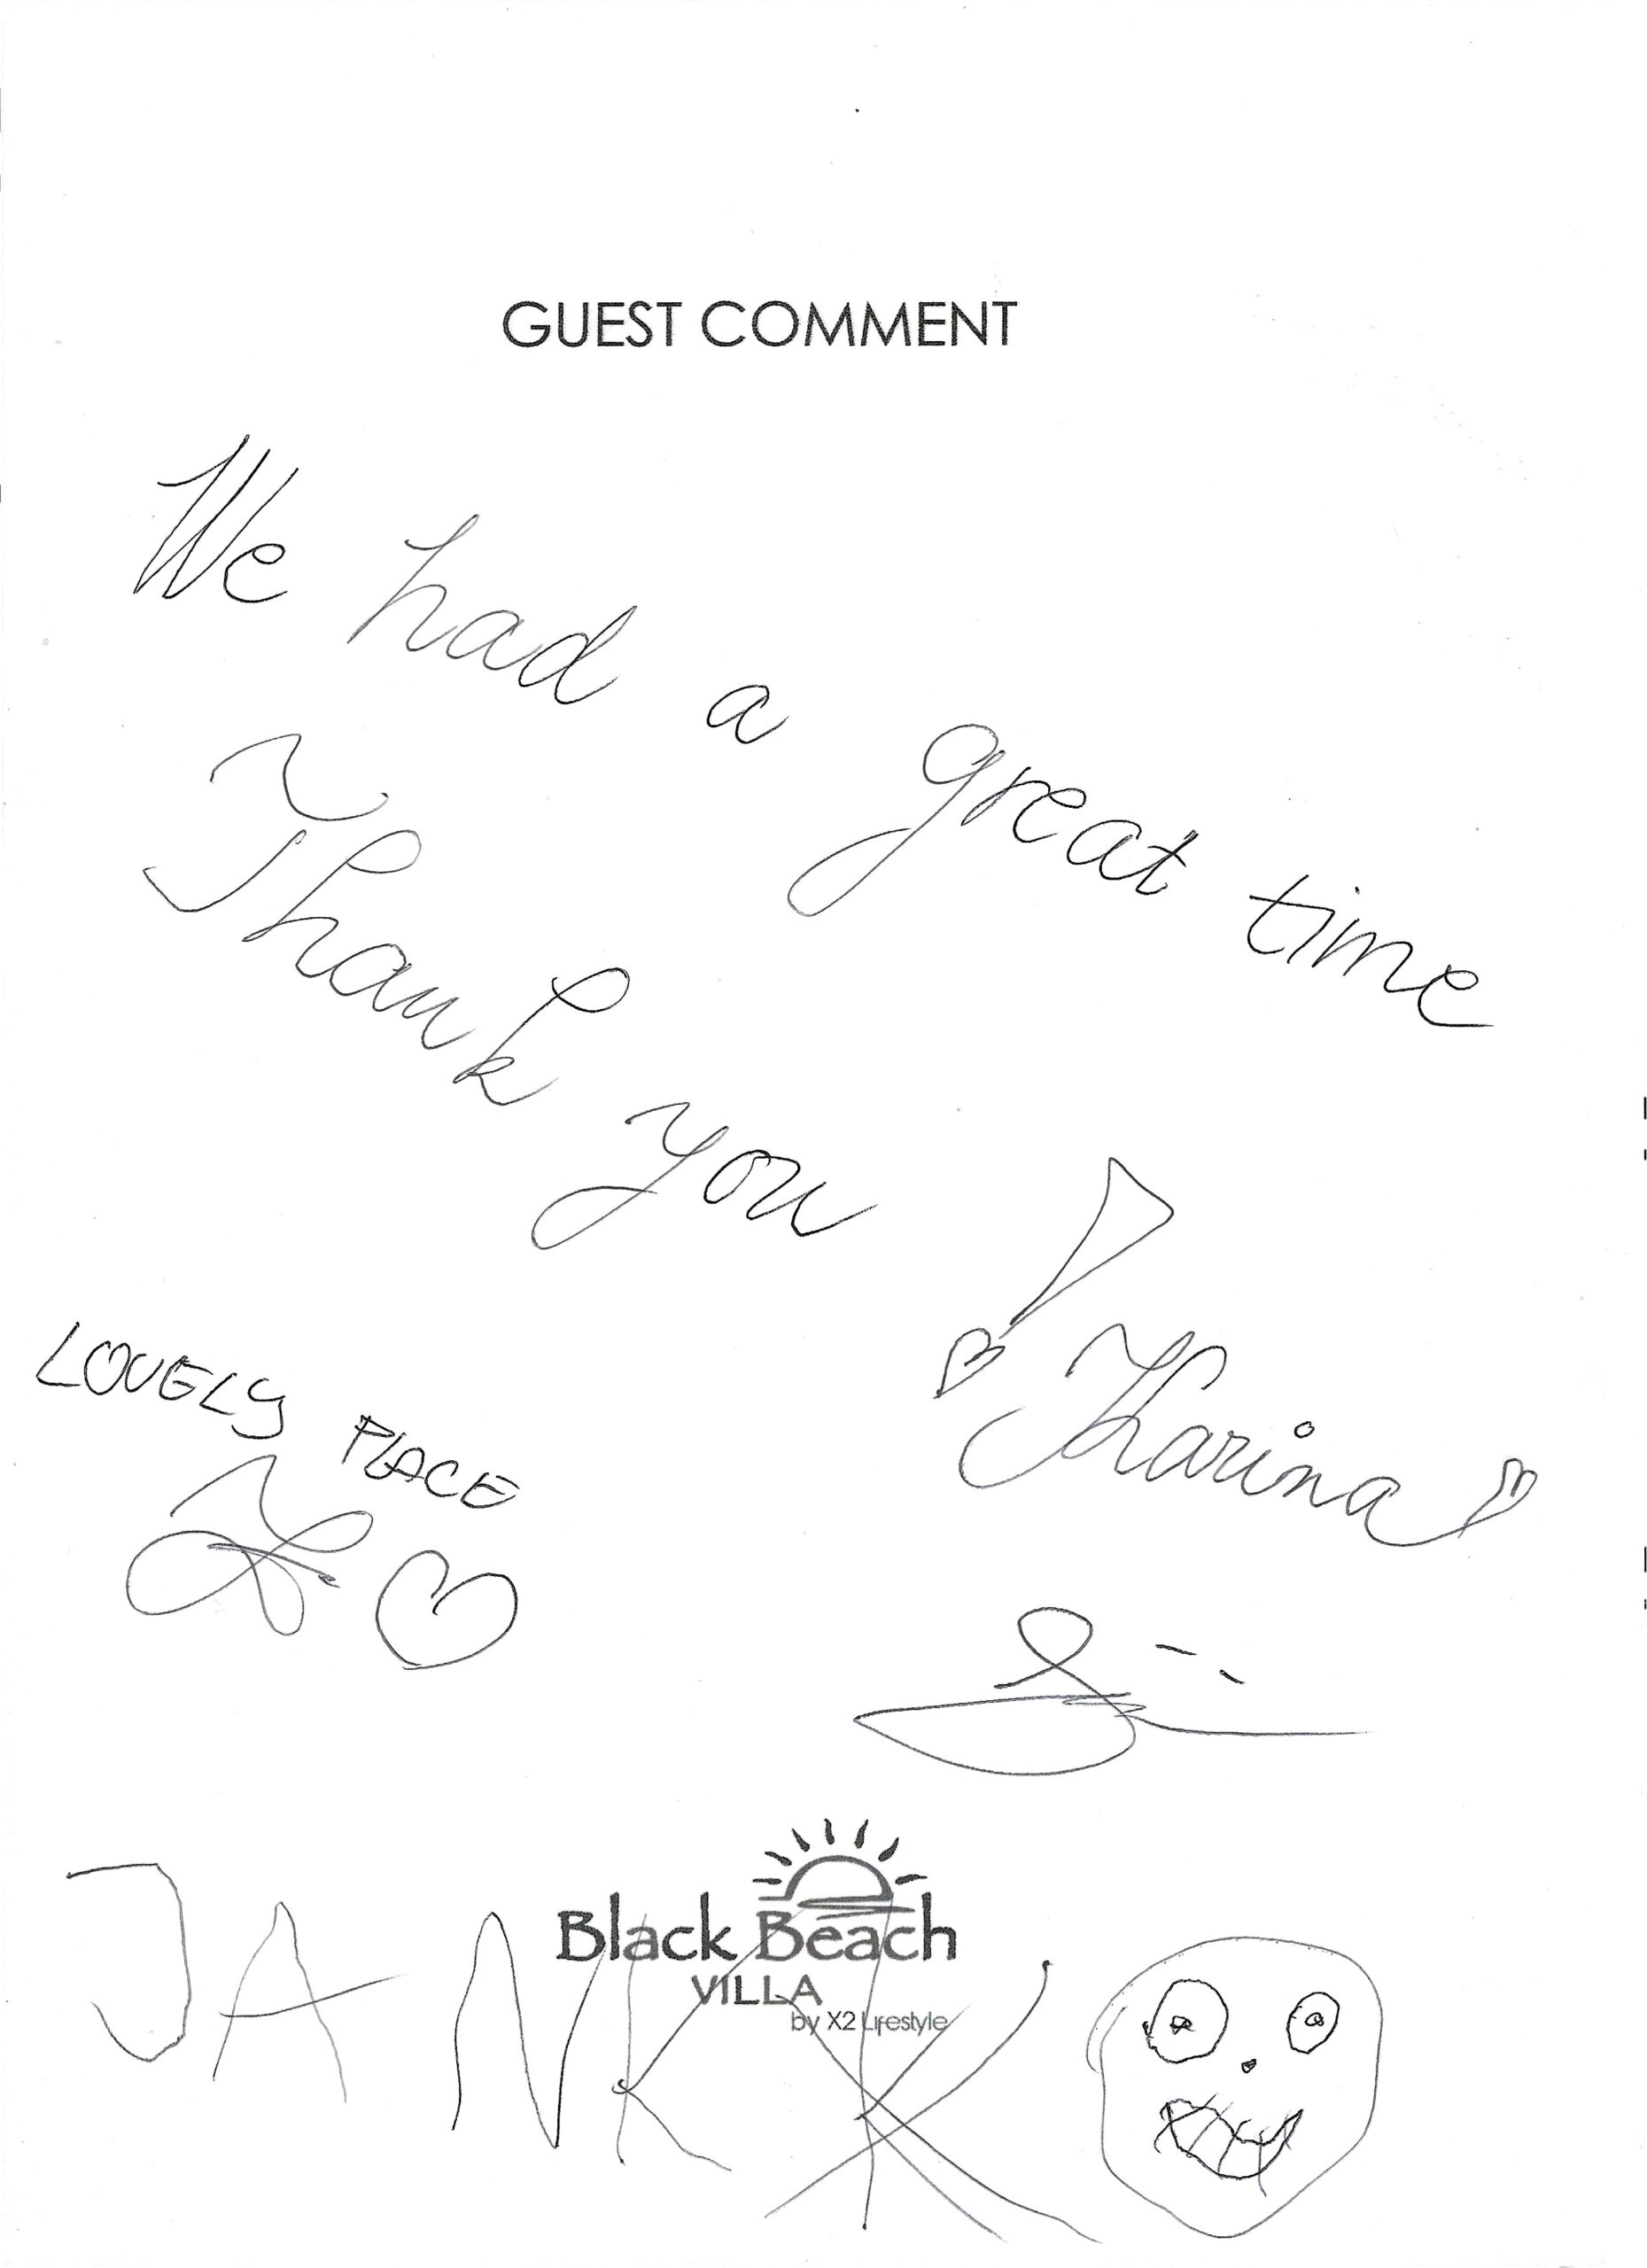 GUEST COMMENT
We had a great time
Thank you !
Karina
LOVELY PLACE
Black Beach
VILLA
by X2 Lifestyle
JANKO